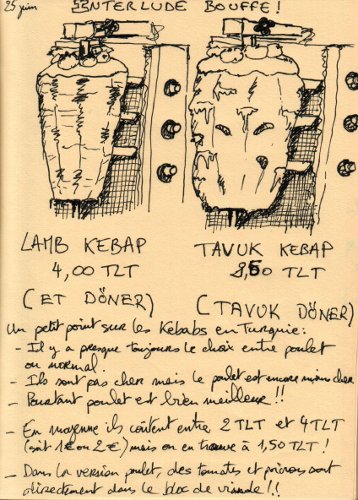 25 juin
INTERLUDE BOUFFE!
LAMB KEBAP
4,00 TLT
(ET DÖNER)
TAVUK KEBAP
3,50 TLT
(TAVUK DÖNER)
Un petit point sur les Kebabs en Turquie:
- Il y a presque toujours le choix entre poulet
ou normal.
- Ils sont pas cher mais le poulet est encore moins cher
- Pourtant poulet est bien meilleur!!
- En moyenne ils coûtent entre 2 TLT et 4 TLT
(soit 1€ ou 2€) mais on en trouve à 1,50 TLT!
- Dans la version poulet, des tomates et poivrons sont
directement dans le bloc de viande!!